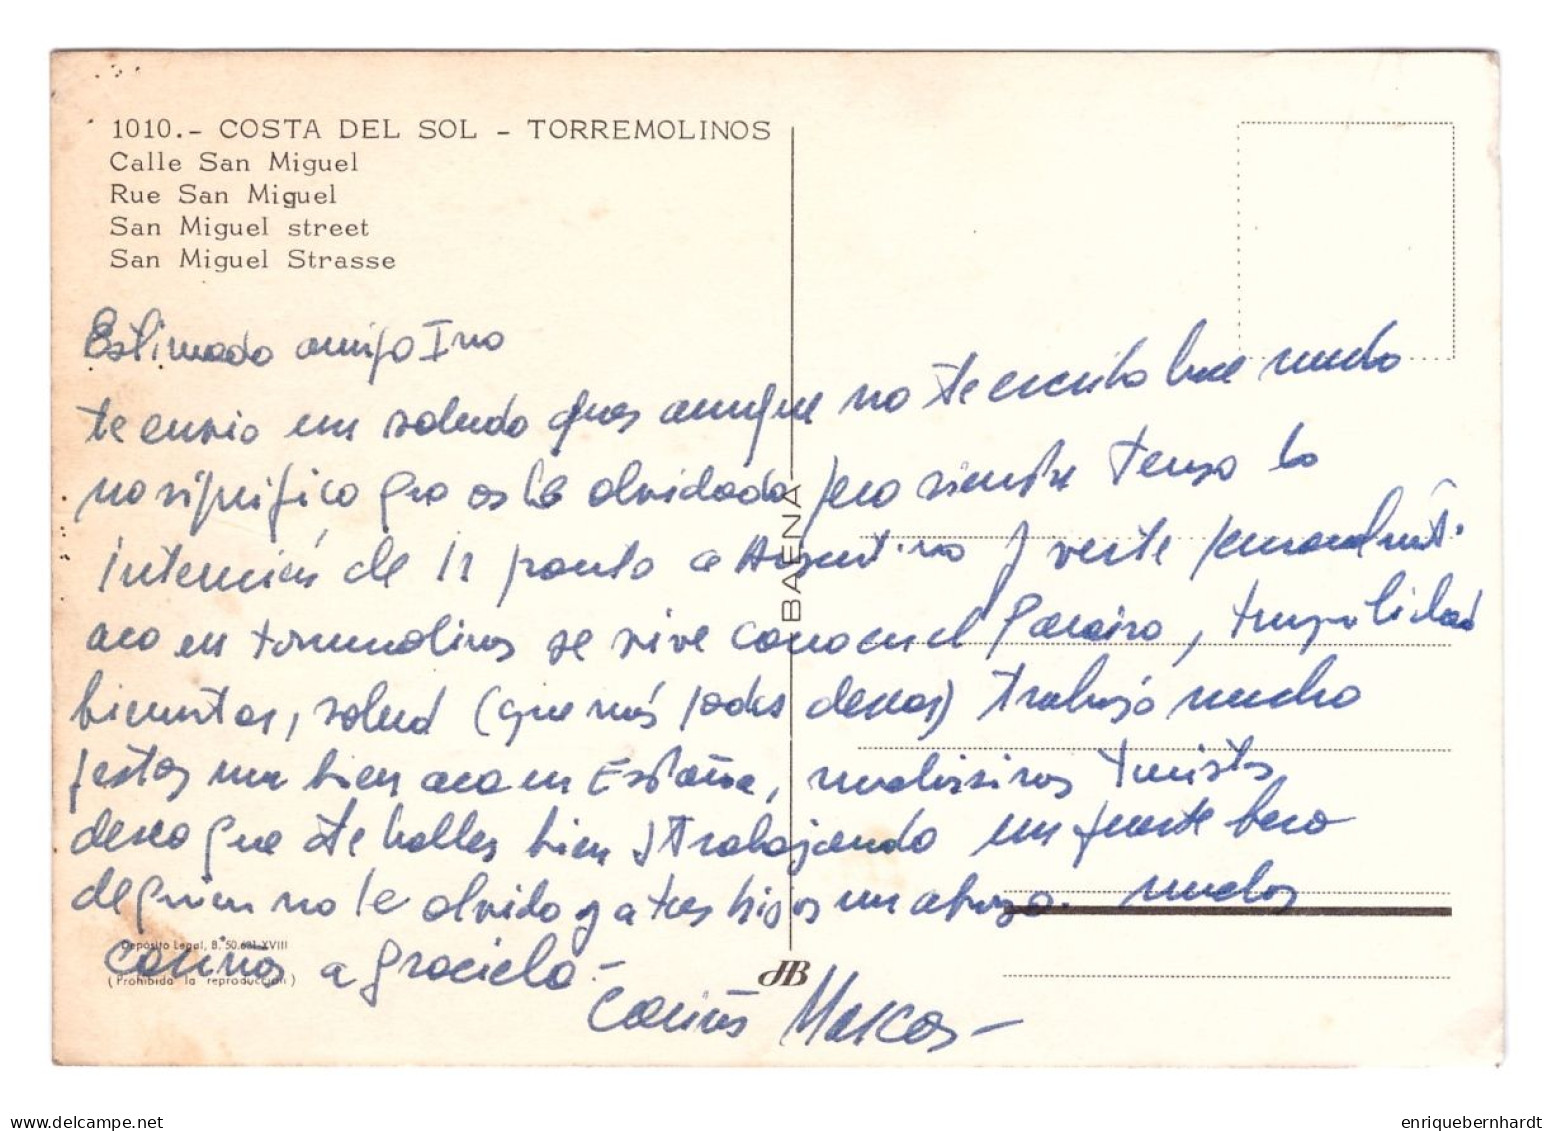 1010.- COSTA DEL SOL - TORREMOLINOS
Calle San Miguel
Rue San Miguel
San Miguel street
San Miguel Strasse
Estimado amigo Ino
te envio un saludo ques aunque no te escrito hace mucho
no significa que os he olvidado pero siempre tengo la
intención de ir pronto a Argentina y verte personalmente
aca en torremolinos se vive como en el Paraiso, tranquilidad
bienestar, salud (que más podes desear) trabajo mucho
estas un bien aca en España, muchisimos turistas
deseo que te halles bien y trabajando un fuerte beso
de quien no te olvida y a tus hijos un abrazo. muchos
cariños a Graciela-
Cariños Marcos-
BAENA
Depósito Legal, B. 50.681-XVIII
(Prohibida la reproducción)
JB
delcampe.net
enriquebernhardt